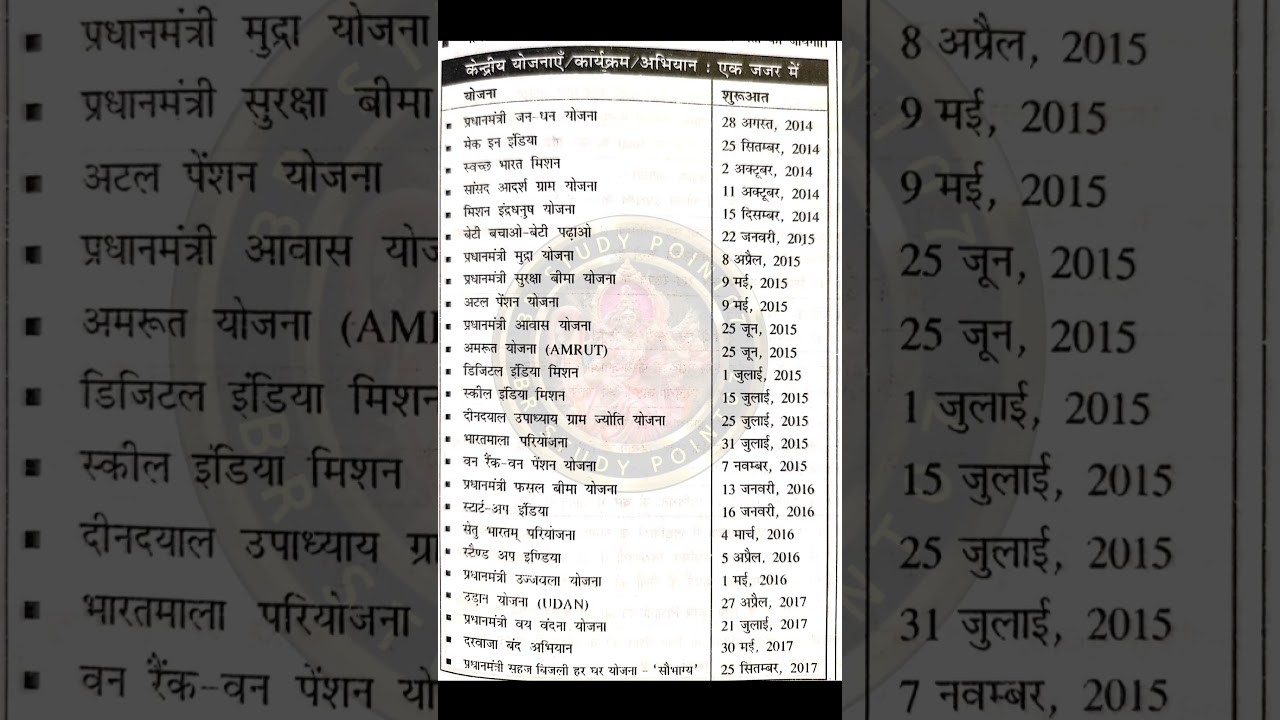 केन्द्रीय योजनाएँ/कार्यक्रम/अभियान : एक जजर में
योजना शुरूआत
प्रधानमंत्री जन-धन योजना 28 अगस्त, 2014
मेक इन इंडिया 25 सितम्बर, 2014
स्वच्छ भारत मिशन 2 अक्टूबर, 2014
सांसद आदर्श ग्राम योजना 11 अक्टूबर, 2014
मिशन इंद्रधनुष योजना 15 दिसम्बर, 2014
बेटी बचाओ-बेटी पढ़ाओ 22 जनवरी, 2015
प्रधानमंत्री मुद्रा योजना 8 अप्रैल, 2015
प्रधानमंत्री सुरक्षा बीमा योजना 9 मई, 2015
अटल पेंशन योजना 9 मई, 2015
प्रधानमंत्री आवास योजना 25 जून, 2015
अमरूत योजना (AMRUT) 25 जून, 2015
डिजिटल इंडिया मिशन 1 जुलाई, 2015
स्कील इंडिया मिशन 15 जुलाई, 2015
दीनदयाल उपाध्याय ग्राम ज्योति योजना 25 जुलाई, 2015
भारतमाला परियोजना 31 जुलाई, 2015
वन रैंक-वन पेंशन योजना 7 नवम्बर, 2015
प्रधानमंत्री फसल बीमा योजना 13 जनवरी, 2016
स्टार्ट-अप इंडिया 16 जनवरी, 2016
सेतु भारतम् परियोजना 4 मार्च, 2016
स्टैण्ड अप इण्डिया 5 अप्रैल, 2016
प्रधानमंत्री उज्जवला योजना 1 मई, 2016
उड़ान योजना (UDAN) 27 अप्रैल, 2017
प्रधानमंत्री वय वंदना योजना 21 जुलाई, 2017
दरवाजा बंद अभियान 30 मई, 2017
प्रधानमंत्री सहज बिजली हर घर योजना - 'सौभाग्य' 25 सितम्बर, 2017
STUDY POINT
STUDY POINT
प्रधानमंत्री मुद्रा योजना 8 अप्रैल, 2015
प्रधानमंत्री सुरक्षा बीमा 9 मई, 2015
अटल पेंशन योजना 9 मई, 2015
प्रधानमंत्री आवास 25 जून, 2015
अमरूत योजना 25 जून, 2015
डिजिटल इंडिया मिशन 1 जुलाई, 2015
स्कील इंडिया मिशन 15 जुलाई, 2015
दीनदयाल उपाध्याय 25 जुलाई, 2015
भारतमाला परियोजना 31 जुलाई, 2015
वन रैंक-वन पेंशन 7 नवम्बर, 2015